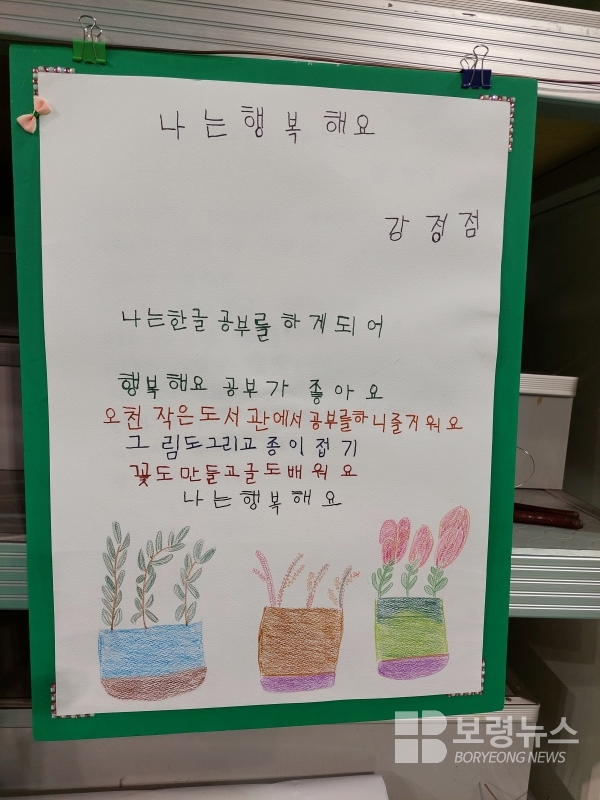 나는 행복해요
강정점
나는 한글 공부를 하게 되어
행복해요 공부가 좋아요
오천 작은 도서관에서 공부를하니 즐거워요
그림도 그리고 종이접기
꽃도 만들고 글도 배워요
나는 행복해요
보령뉴스
BORYEONG NEWS